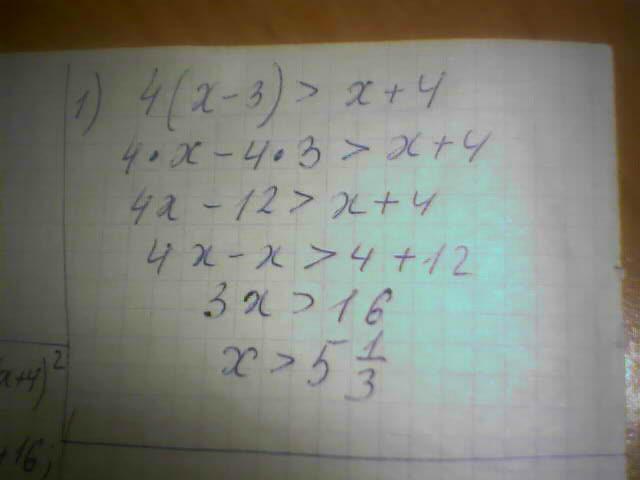 1) 4(x-3)> x+4
4•x-4•3 > x+4
4x-12> x+4
4x-x>4+12
3x>16
x>5 1/3
x+4)²
+16;